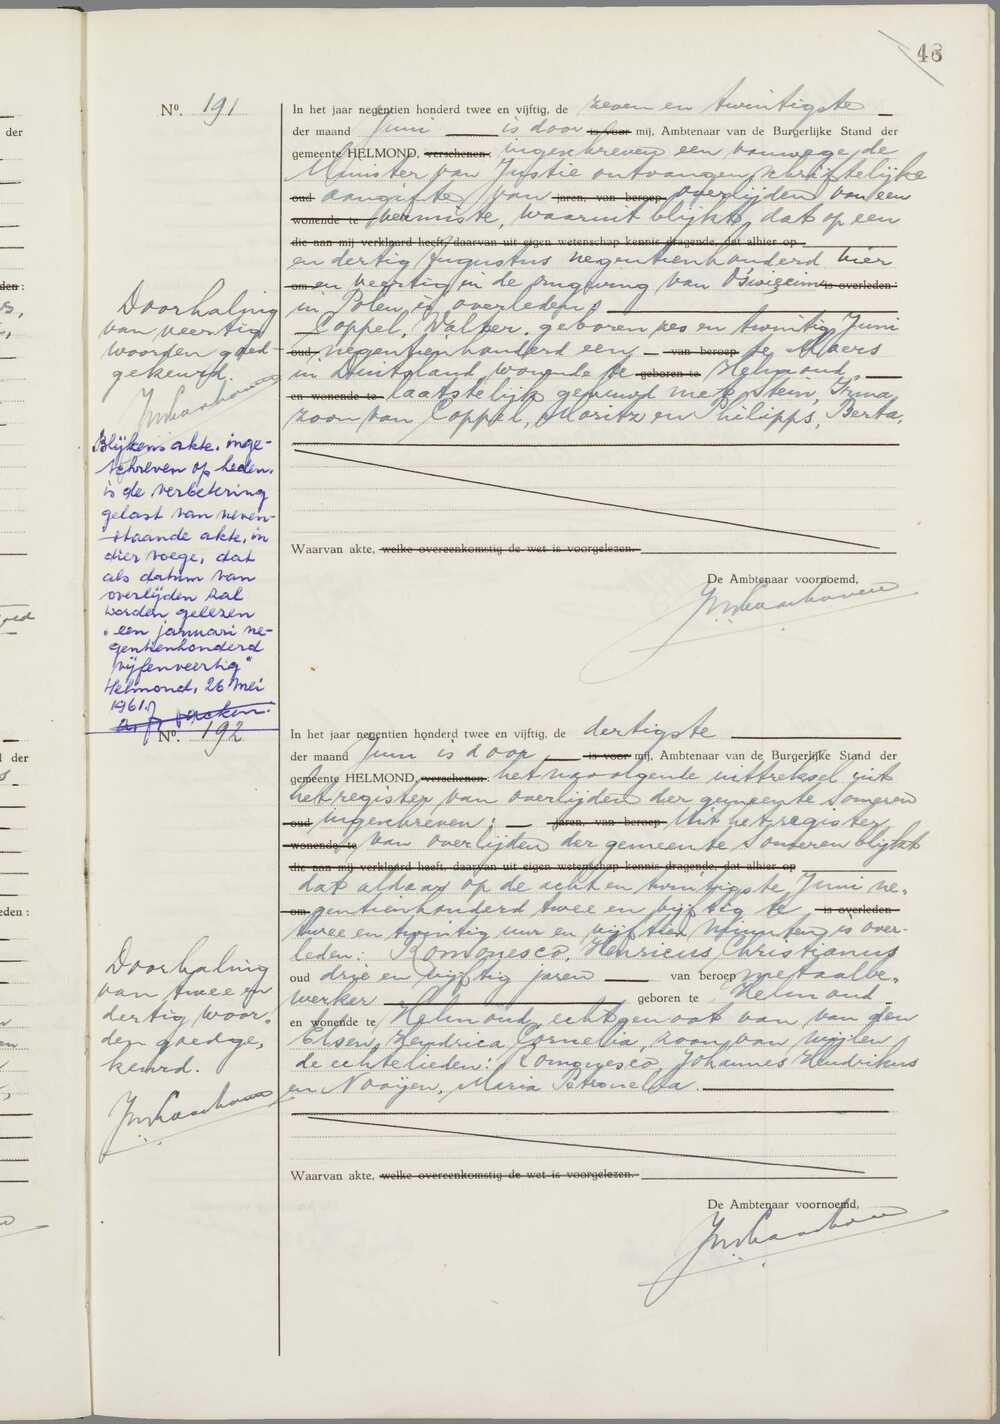 46
Nº. 191
In het jaar negentien honderd twee en vijftig, de zeven en twintigste
der maand Juni is door is voor mij, Ambtenaar van de Burgerlijke Stand der
gemeente HELMOND, verschenen: ingeschreven een vanwege de
Minister van Justie ontvangen schriftelijke
oud aangifte van jaren, van beroep overlijden van een
wonende te vermiste, waaruit blijkt, dat op een
die aan mij verklaard heeft, daarvan uit eigen wetenschap kennis dragende, dat alhier op
en dertig Augustus negentienhonderd vier
om en veertig in de omgeving van Oświęcim is overleden:
in Polen is overleden:
Coppel, Walter, geboren zes en twintig Juni
oud, negentienhonderd een van beroep te Moers
in Duitsland wonende te geboren te Helmond
en wonende te laatstelijk gehuwd met Stein, Irma,
zoon van Coppel, Moritz en Philipps, Berta.
Waarvan akte, welke overeenkomstig de wet is voorgelezen.
De Ambtenaar voornoemd,
Doorhaling
van veertig
woorden goed-
gekeurd.
Blijkens akte, inge-
schreven op heden,
is de verbetering
gelast van neven-
staande akte, in
dier voege, dat
als datum van
overlijden zal
worden gelezen
"een januari ne-
gentienhonderd
vijfenveertig"
Helmond, 26 mei
1961.
Nº. 192
In het jaar negentien honderd twee en vijftig, de dertigste
der maand Juni is door is voor mij, Ambtenaar van de Burgerlijke Stand der
gemeente HELMOND, verschenen: het navolgende uittreksel uit
het register van overlijden der gemeente Someren
oud ingeschreven: jaren, van beroep Uit het register
wonende te van overlijden der gemeente Someren blijkt
die aan mij verklaard heeft, daarvan uit eigen wetenschap kennis dragende, dat alhier op
dat aldaar op de acht en twintigste Juni ne-
om gentienhonderd twee en vijftig te is overleden
twee en twintig uur en vijftien minuten is over-
leden: Romonesco, Henricus Christianus
oud drie en vijftig jaren van beroep metaalbe-
werker geboren te Helmond
en wonende te Helmond, echtgenoot van van den
Elsen, Hendrica Cornelia, zoon van wijlen
de echtelieden: Romonesco, Johannes Hendrikus
en Nooijen, Maria Petronella.
Waarvan akte, welke overeenkomstig de wet is voorgelezen.
De Ambtenaar voornoemd,
Doorhaling
van twee en
dertig woor-
den goedge-
keurd.